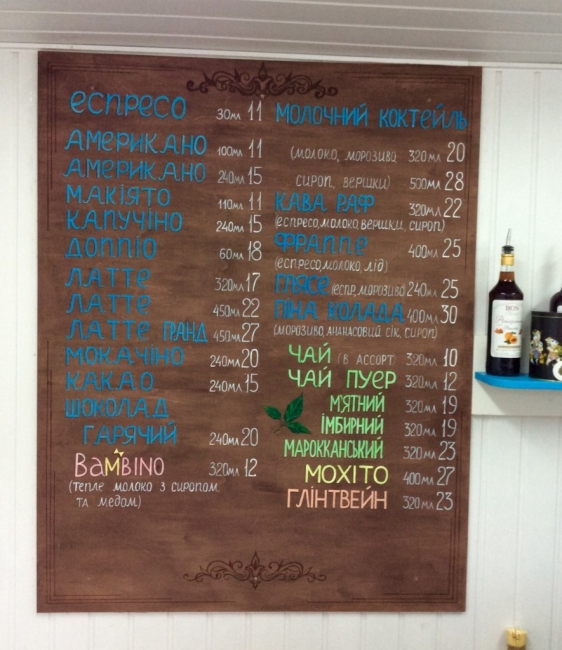 еспресо 30мл 11
Американо 100мл 11
Американо 240мл 15
Макіято 110мл 11
Капучіно 240мл 15
Доппіо 60мл 18
Латте 320мл 17
Латте 450мл 22
Латте гранд 450мл 27
Мокачіно 240мл 20
Какао 240мл 15
Шоколад
гарячий 240мл 20
BAMBINO 320мл 12
(тепле молоко з сиропом
та медом)
Молочний коктейль
(молоко, морозиво 320мл 20
сироп, вершки) 500мл 28
Кава раф 320мл 22
(еспресо, молоко, вершки, сироп)
Фраппе 400мл 25
(еспресо, молоко, лід)
Глясе (еспр, морозиво) 240мл 25
Піна колада 400мл 30
(морозиво, ананасовий сік, сироп)
Чай (в ассорт 320мл 10
Чай пуер 320мл 12
М'ятний 320мл 19
Імбирний 320мл 19
Марокканський 320мл 23
Мохіто 400мл 27
Глінтвейн 320мл 23